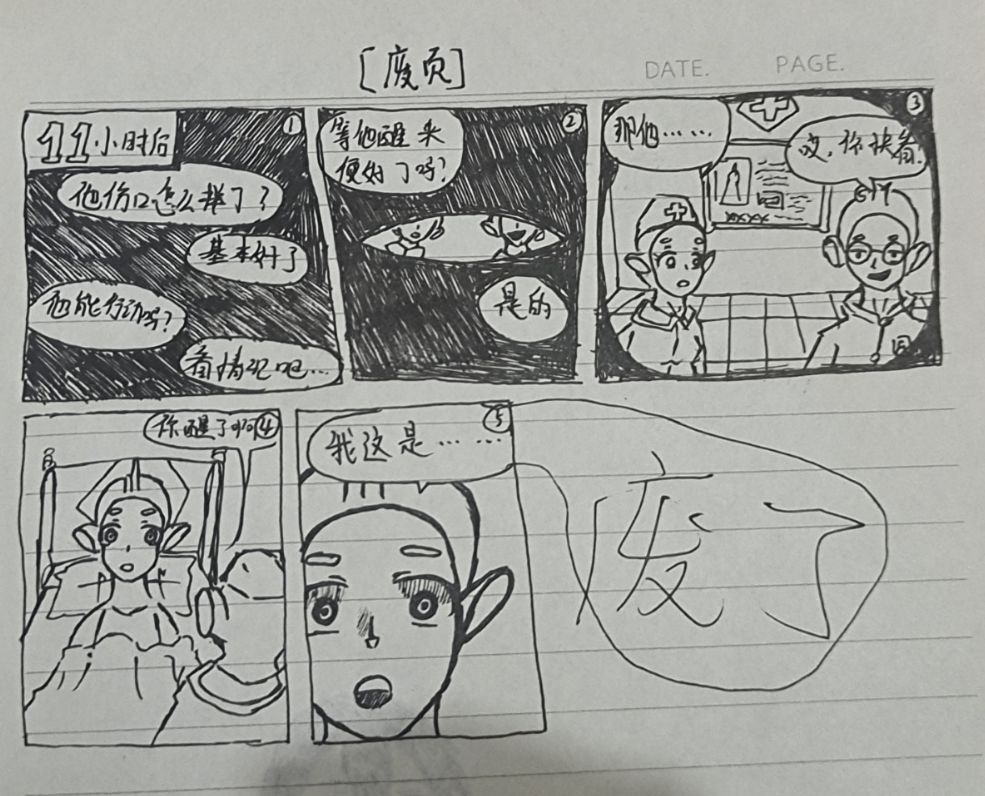 [废页]
DATE.
PAGE.
①
11小时后
他伤口怎么样了？
基本好了
他能行动吗？
看情况吧…
②
等他醒来
便好了吗？
是的
③
那他……
哎，你快看.
XXXX
④
你醒了啊
⑤
我这是……
废了